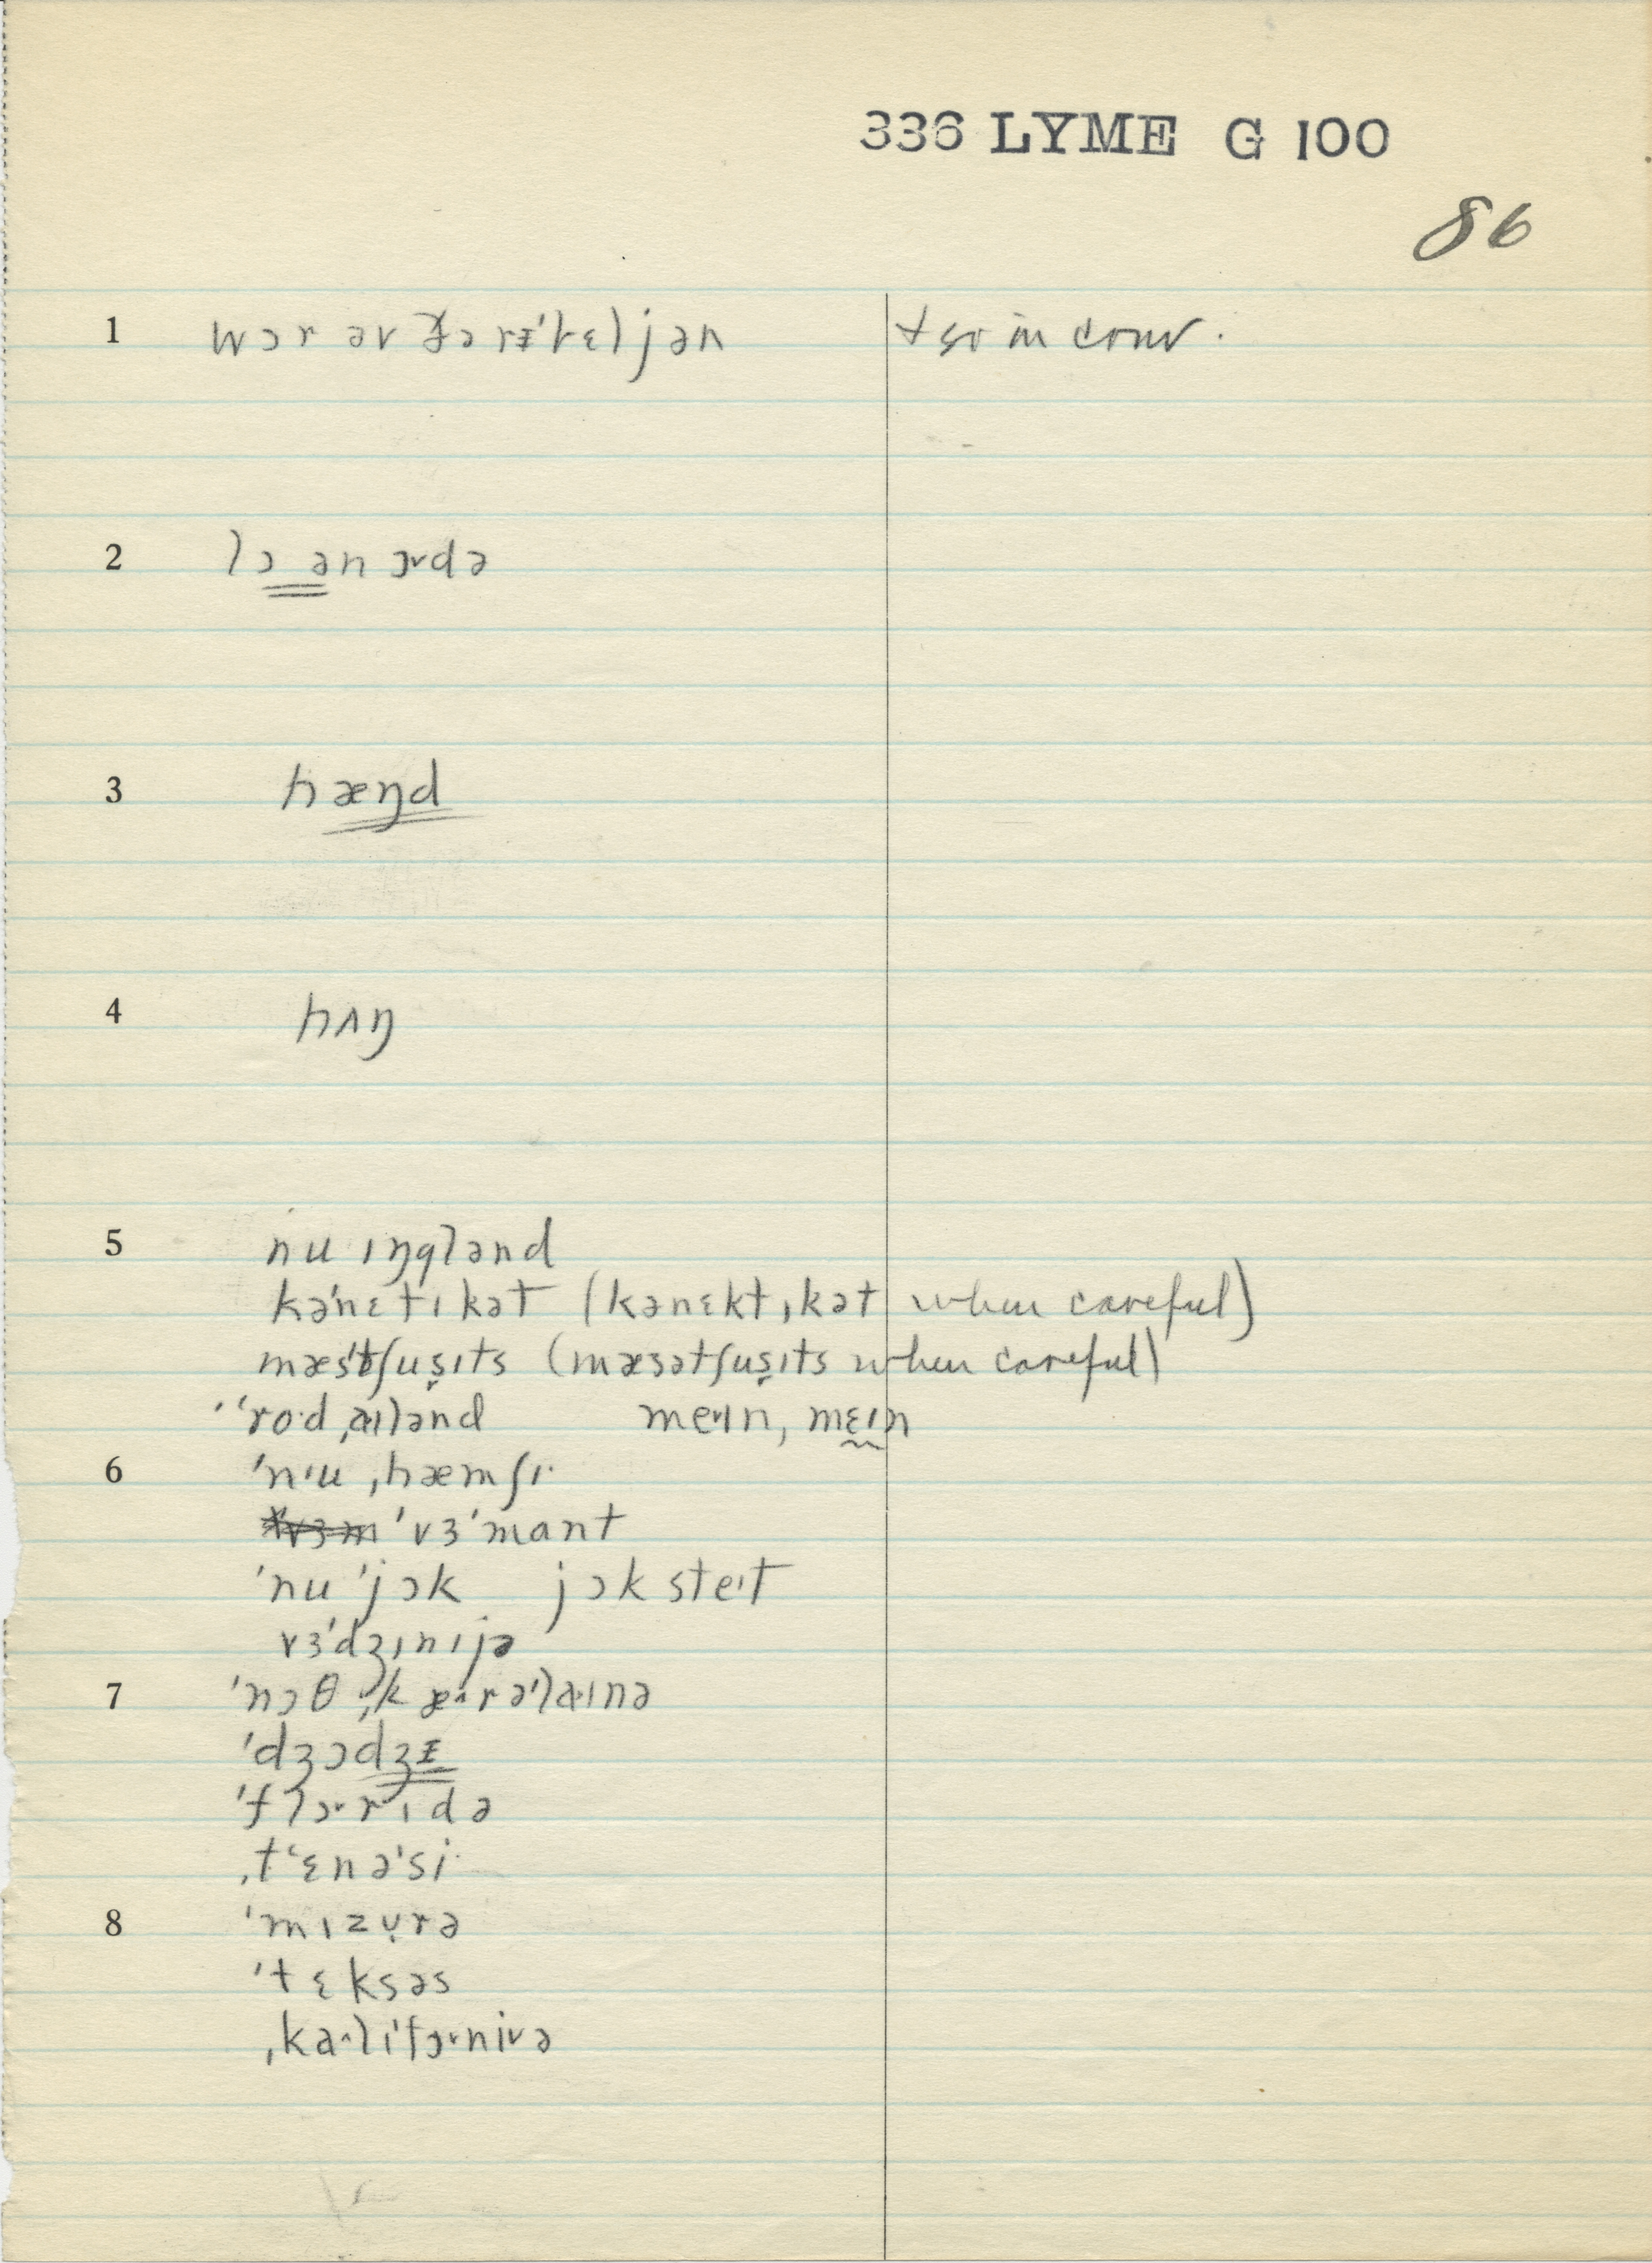 336 LYME G 100
86
1 wɔr əv ðə rᵻˈbɛljən + so in conv.
2 lɔ ən ɔɚdə
3 hæŋd
4 hʌŋ
5 nu ɪŋglənd
kəˈnɛtɪkət (kənɛktɪkət when careful)
mæsˈtʃusɪts (mæsətʃusɪts when careful)
ˈˈroˑdˌaɪlənd meɪn, mɛɪn
6 ˈnɪuˌhæmʃɪ
ˈvɜˈmant
ˈnu ˈjɔk jɔk steɪt
vɜˈdʒɪnɪjə
7 ˈnɔθ ˌkærəˈlaɪnə
ˈdʒɔdʒᵻ
ˈflɔrɪdə
ˌtʻɛnəˈsi
8 ˈmɪzʊrə
ˈtɛksəs
ˌkalɪˈfɔrnivə